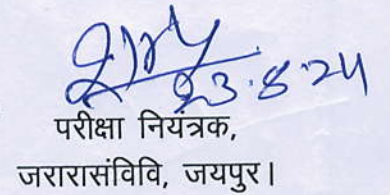 23.8.24
परीक्षा नियंत्रक,
जरारासंविवि, जयपुर।